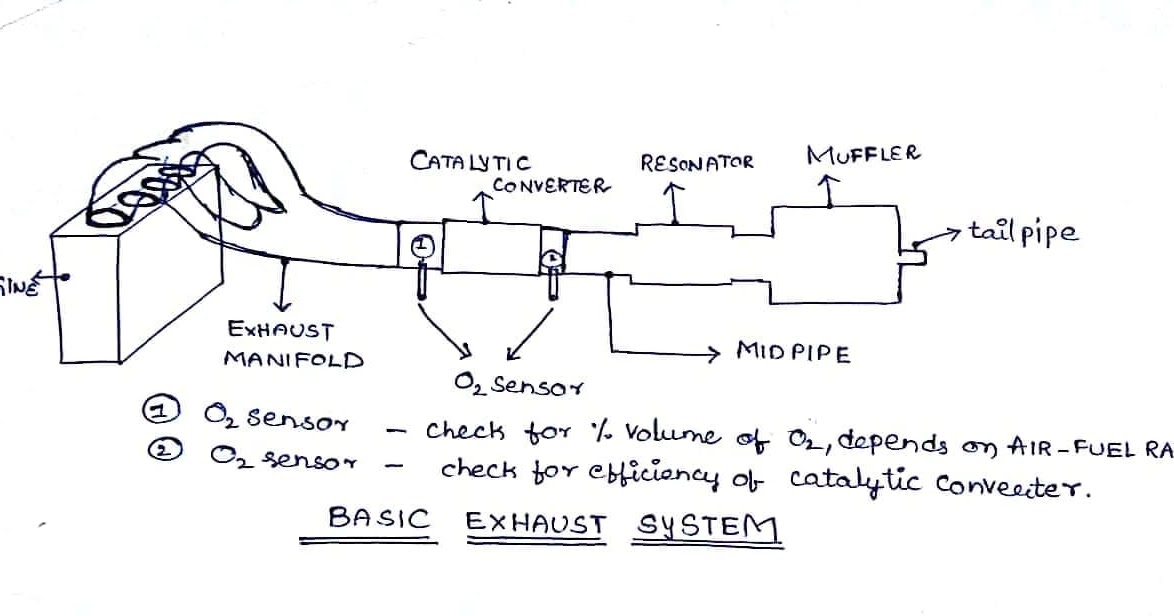 CATALYTIC
CONVERTER
RESONATOR
MUFFLER
tail pipe
GINE
1
2
EXHAUST
MANIFOLD
O2 sensor
MID PIPE
1 O2 sensor - check for % volume of O2, depends on AIR-FUEL RA
2 O2 sensor - check for efficiency of catalytic converter.
BASIC EXHAUST SYSTEM